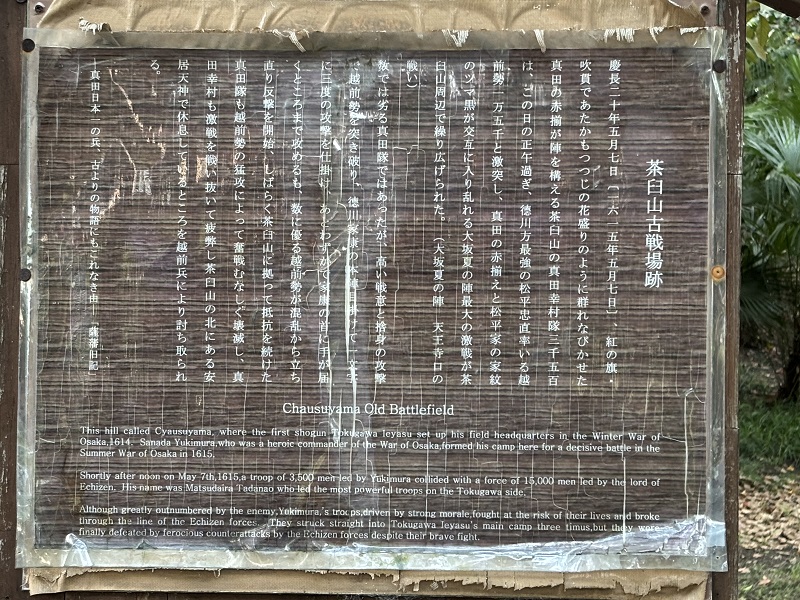 茶臼山古戦場跡
慶長二十年五月七日〔一六一五年五月七日〕、紅の旗・
吹貫であたかもつつじの花盛りのように群れなびかせた
真田の赤揃が陣を構える茶臼山の真田幸村隊三千五百
は、この日の正午過ぎ、徳川方最強の松平忠直率いる越
前勢一万五千と激突し、真田の赤揃えと松平家の家紋
のツマ黒が交互に入り乱れる大坂夏の陣最大の激戦が茶
臼山周辺で繰り広げられた。(大坂夏の陣 天王寺口の
戦い)
では劣る真田隊ではあったが、高い戦意と捨身の攻撃
越前勢を突き破り、徳川家康の本陣目掛けて一文字
に三度の攻撃を仕掛け、あとわずかで家康の首に手が届
くところまで攻めるも、数に優る越前勢が混乱から立ち
直り反撃を開始、しばらく茶臼山に拠って抵抗を続けた
真田隊も越前勢の猛攻によって奮戦むなしく壊滅し、真
田幸村も激戦を戦い抜いて疲弊し茶臼山の北にある安
居天神で休息しているところを越前兵により討ち取られ
る。
―真田日本一の兵、古よりの物語にもこれなき由― 「薩藩旧記」
Chausuyama Old Battlefield
This hill called Cyausuyama, where the first shogun Tokugawa Ieyasu set up his field headquarters in the Winter War of
Osaka,1614. Sanada Yukimura,who was a heroic commander of the War of Osaka,formed his camp here for a decisive battle in the
Summer War of Osaka in 1615.
Shortly after noon on May 7th,1615,a troop of 3,500 men led by Yukimura collided with a force of 15,000 men led by the lord of
Echizen. His name was Matsudaira Tadanao who led the most powerful troops on the Tokugawa side.
Although greatly outnumbered by the enemy,Yukimura,'s troops,driven by strong morale,fought at the risk of their lives and broke
through the line of the Echizen forces. They struck straight into Tokugawa Ieyasu's main camp three timus,but they were
finally defeated by ferocious counterattacks by the Echizen forces despite their brave fight.